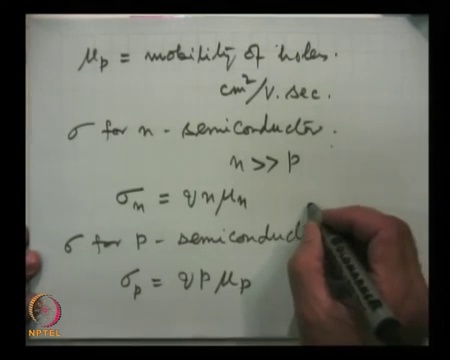 μp = mobility of holes.
cm²/v.sec.
σ for n - semiconductor.
n >> p
σn = qnμn
σ for p - semicond
σp = qpμp
NPTEL